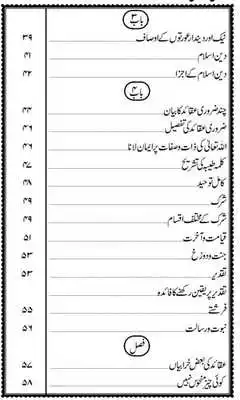 باب ۳
نیک اور دیندار عورتوں کے اوصاف ۳۹
دین اسلام ۴۱
دین اسلام کے اجزا ۴۲
باب ۴
چند ضروری عقائد کا بیان ۴۴
ضروری عقائد کی تفصیل ۴۶
اللہ تعالیٰ کی ذات و صفات پر ایمان لانا ۴۶
کلمہ طیبہ کی تشریح ۴۷
کامل توحید ۴۸
شرک ۴۹
شرک کے مختلف اقسام ۴۹
قیامت و آخرت ۵۱
جنت و دوزخ ۵۳
تقدیر ۵۳
تقدیر پر یقین رکھنے کا فائدہ
فرشتے ۵۵
نبوت و رسالت ۵۶
فصل
عقائد کی بعض خرابیاں ۵۷
کوئی چیز منحوس نہیں ۵۸